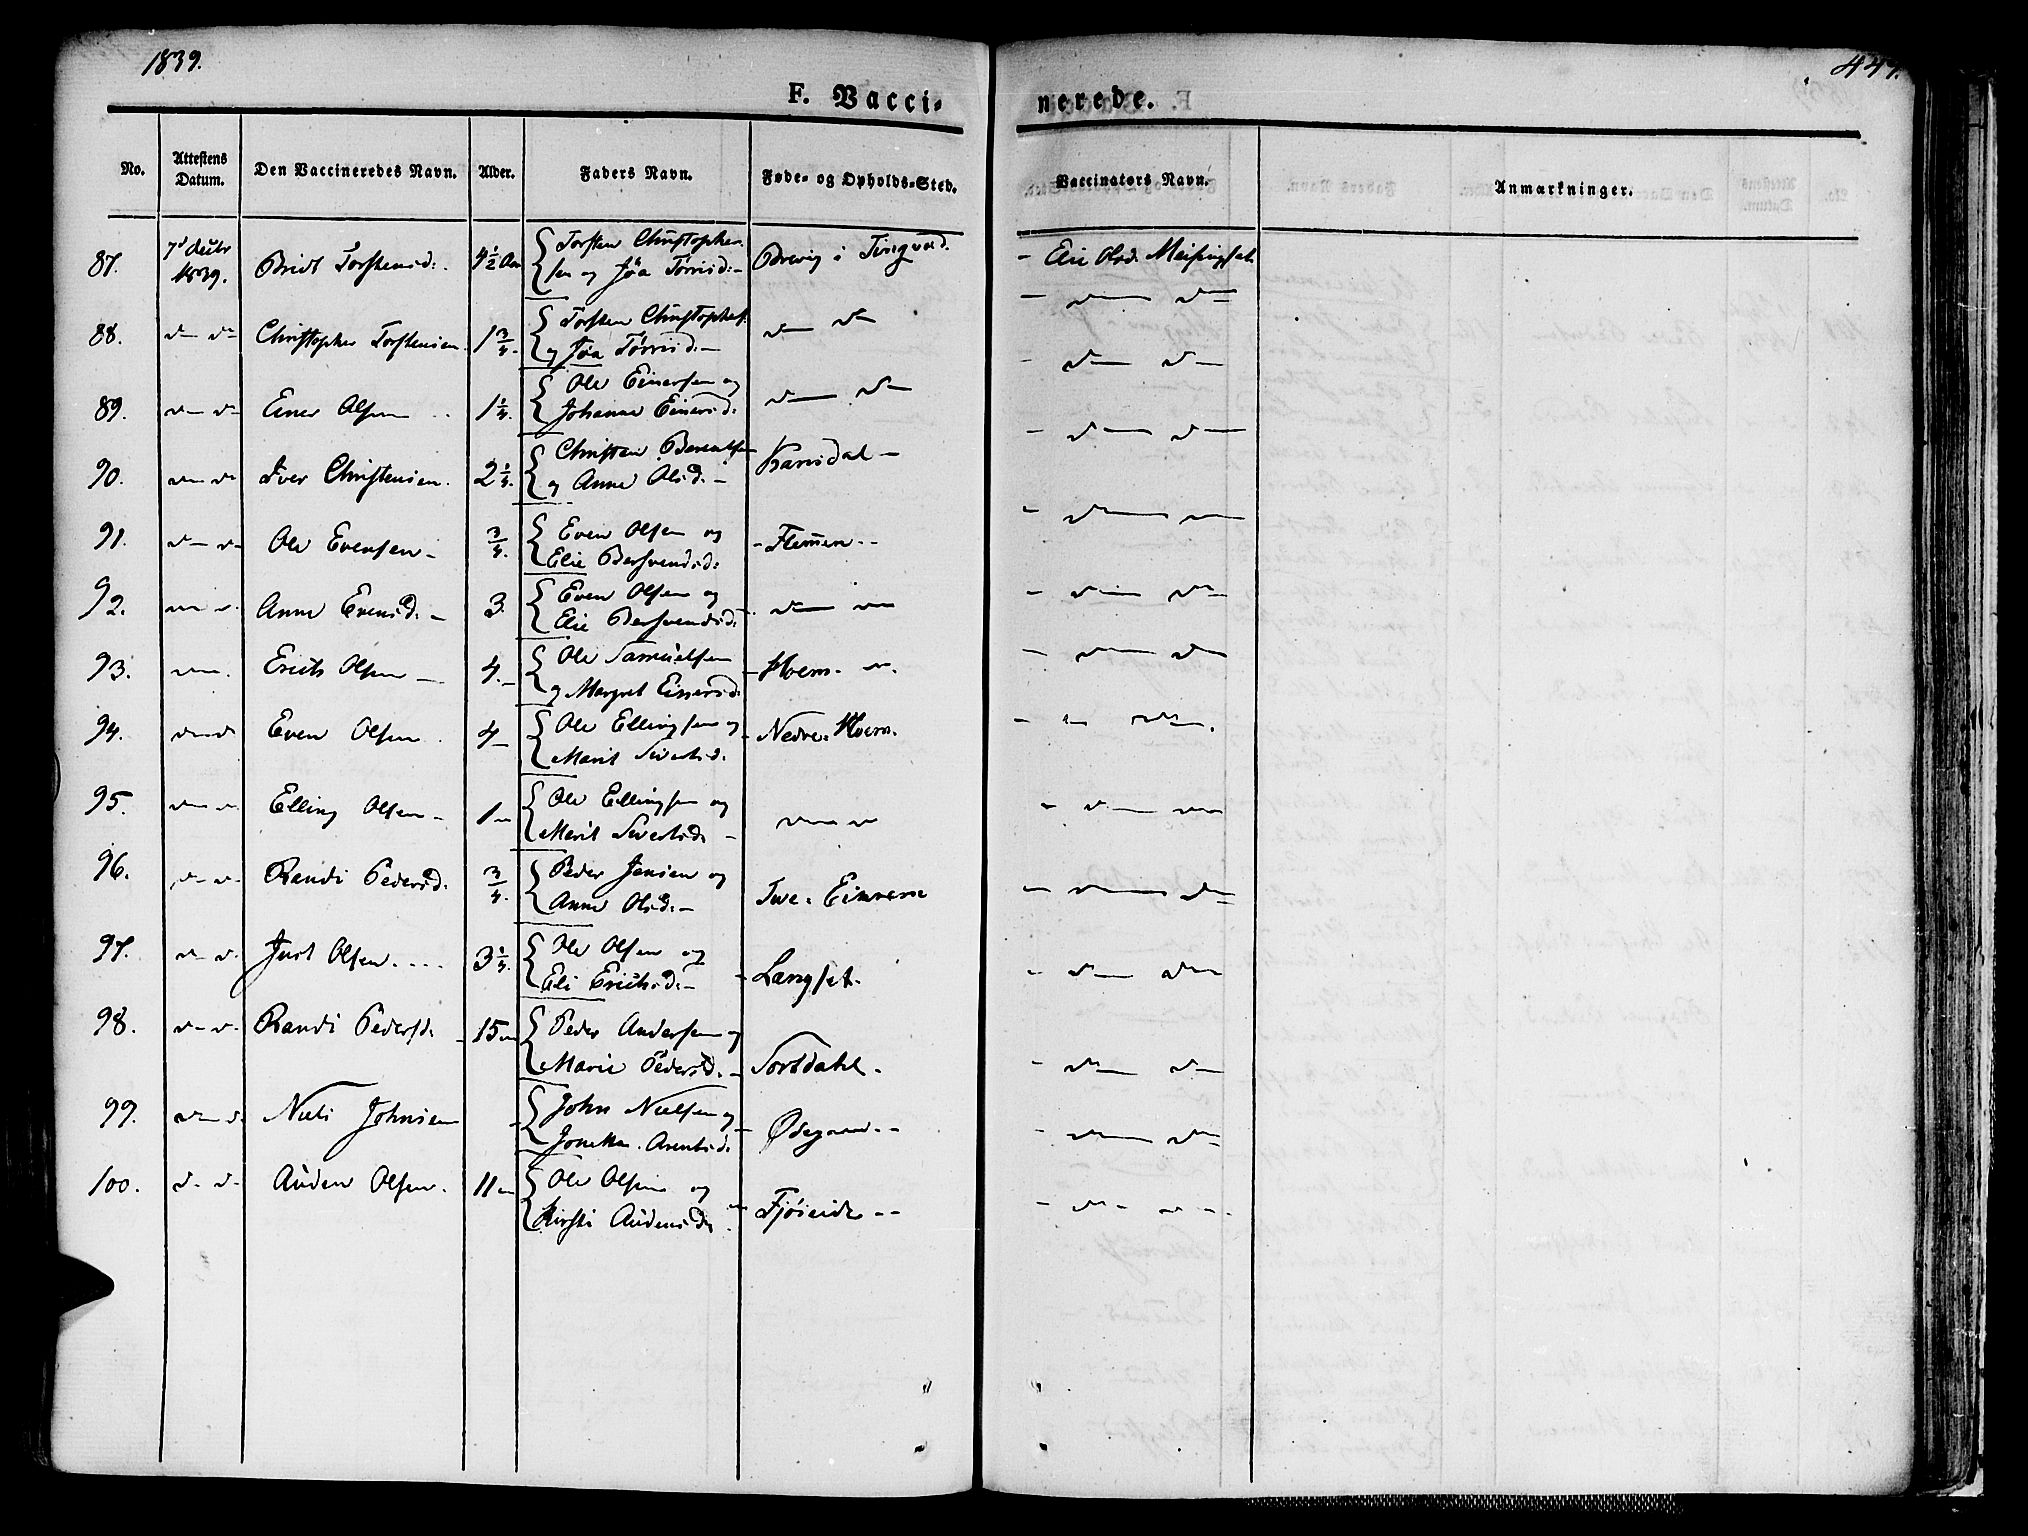 1839.
447.
F. Vacci- nerede.
No. Attestens Datum. Den Vaccineredes Navn. Alder. Faders Navn. Føde- og Opholds-Sted. Vaccinators Navn. Anmærkninger.
87. 7d Decbr 1839. Bridt Torstensd: 4 1/2 Aar Torsten Christophersen og Jøa Tørrisd:- Brevig i Tingvold. - Elie Olsd. Meisingset
88. d- do Christopher Torstensen 1 3/4. Torsten Christophers. og Jøa Tørrisd:- d- d- - d- d-
89. d- d- Einer Olsen 1 1/4. Ole Einersen og Johanna Einersd: d- d- - d- d-
90. d- d- Iver Christensen. 2 1/4. Christen Berentsen og Anne Olsd:- Hansdal - - d- d-
91. d- d- Ole Evensen- 3/4. Even Olsen og Elie Bersvendsd: - Flemmen -- - d- d-
92. d- d- Anne Evensd:- 3. Even Olsen og Elie Bersvendsd: d- d- - d- d-
93. d- Erich Olsen - 4.- Ole Samuelsen og Margret Einersd: - Hoem - - d- d-
94. d- d- Even Olsen. 4- Ole Ellingsen og Marit Sivertsd: - Nedre- Hoem. - d- d-
95. d- d- Elling Olsen- 1- Ole Ellingsen og Marit Sivertsd: - d- d- - d- d-
96. d- d- Randi Pedersd. 3/4. Peder Jensen og Anne Olsd:- - d- d-
97. d- d- Just Olsen.... 3 1/4. Ole Olsen og Eli Erichsd:- - Langset. - d- d-
98. d- d- Randi Pedersd: 15- Peder Andersen og Marie Pedersd.- Sortdahl. - d- d-
99. d- d- Niels Johnsen - John Nielsen og Arentsd: - Ødegaard -- - d- d-
100. d- d- Auden Olsen. 11- Ole Olsen og Kirsti Audensd: - Fjøseide -- - d- d-